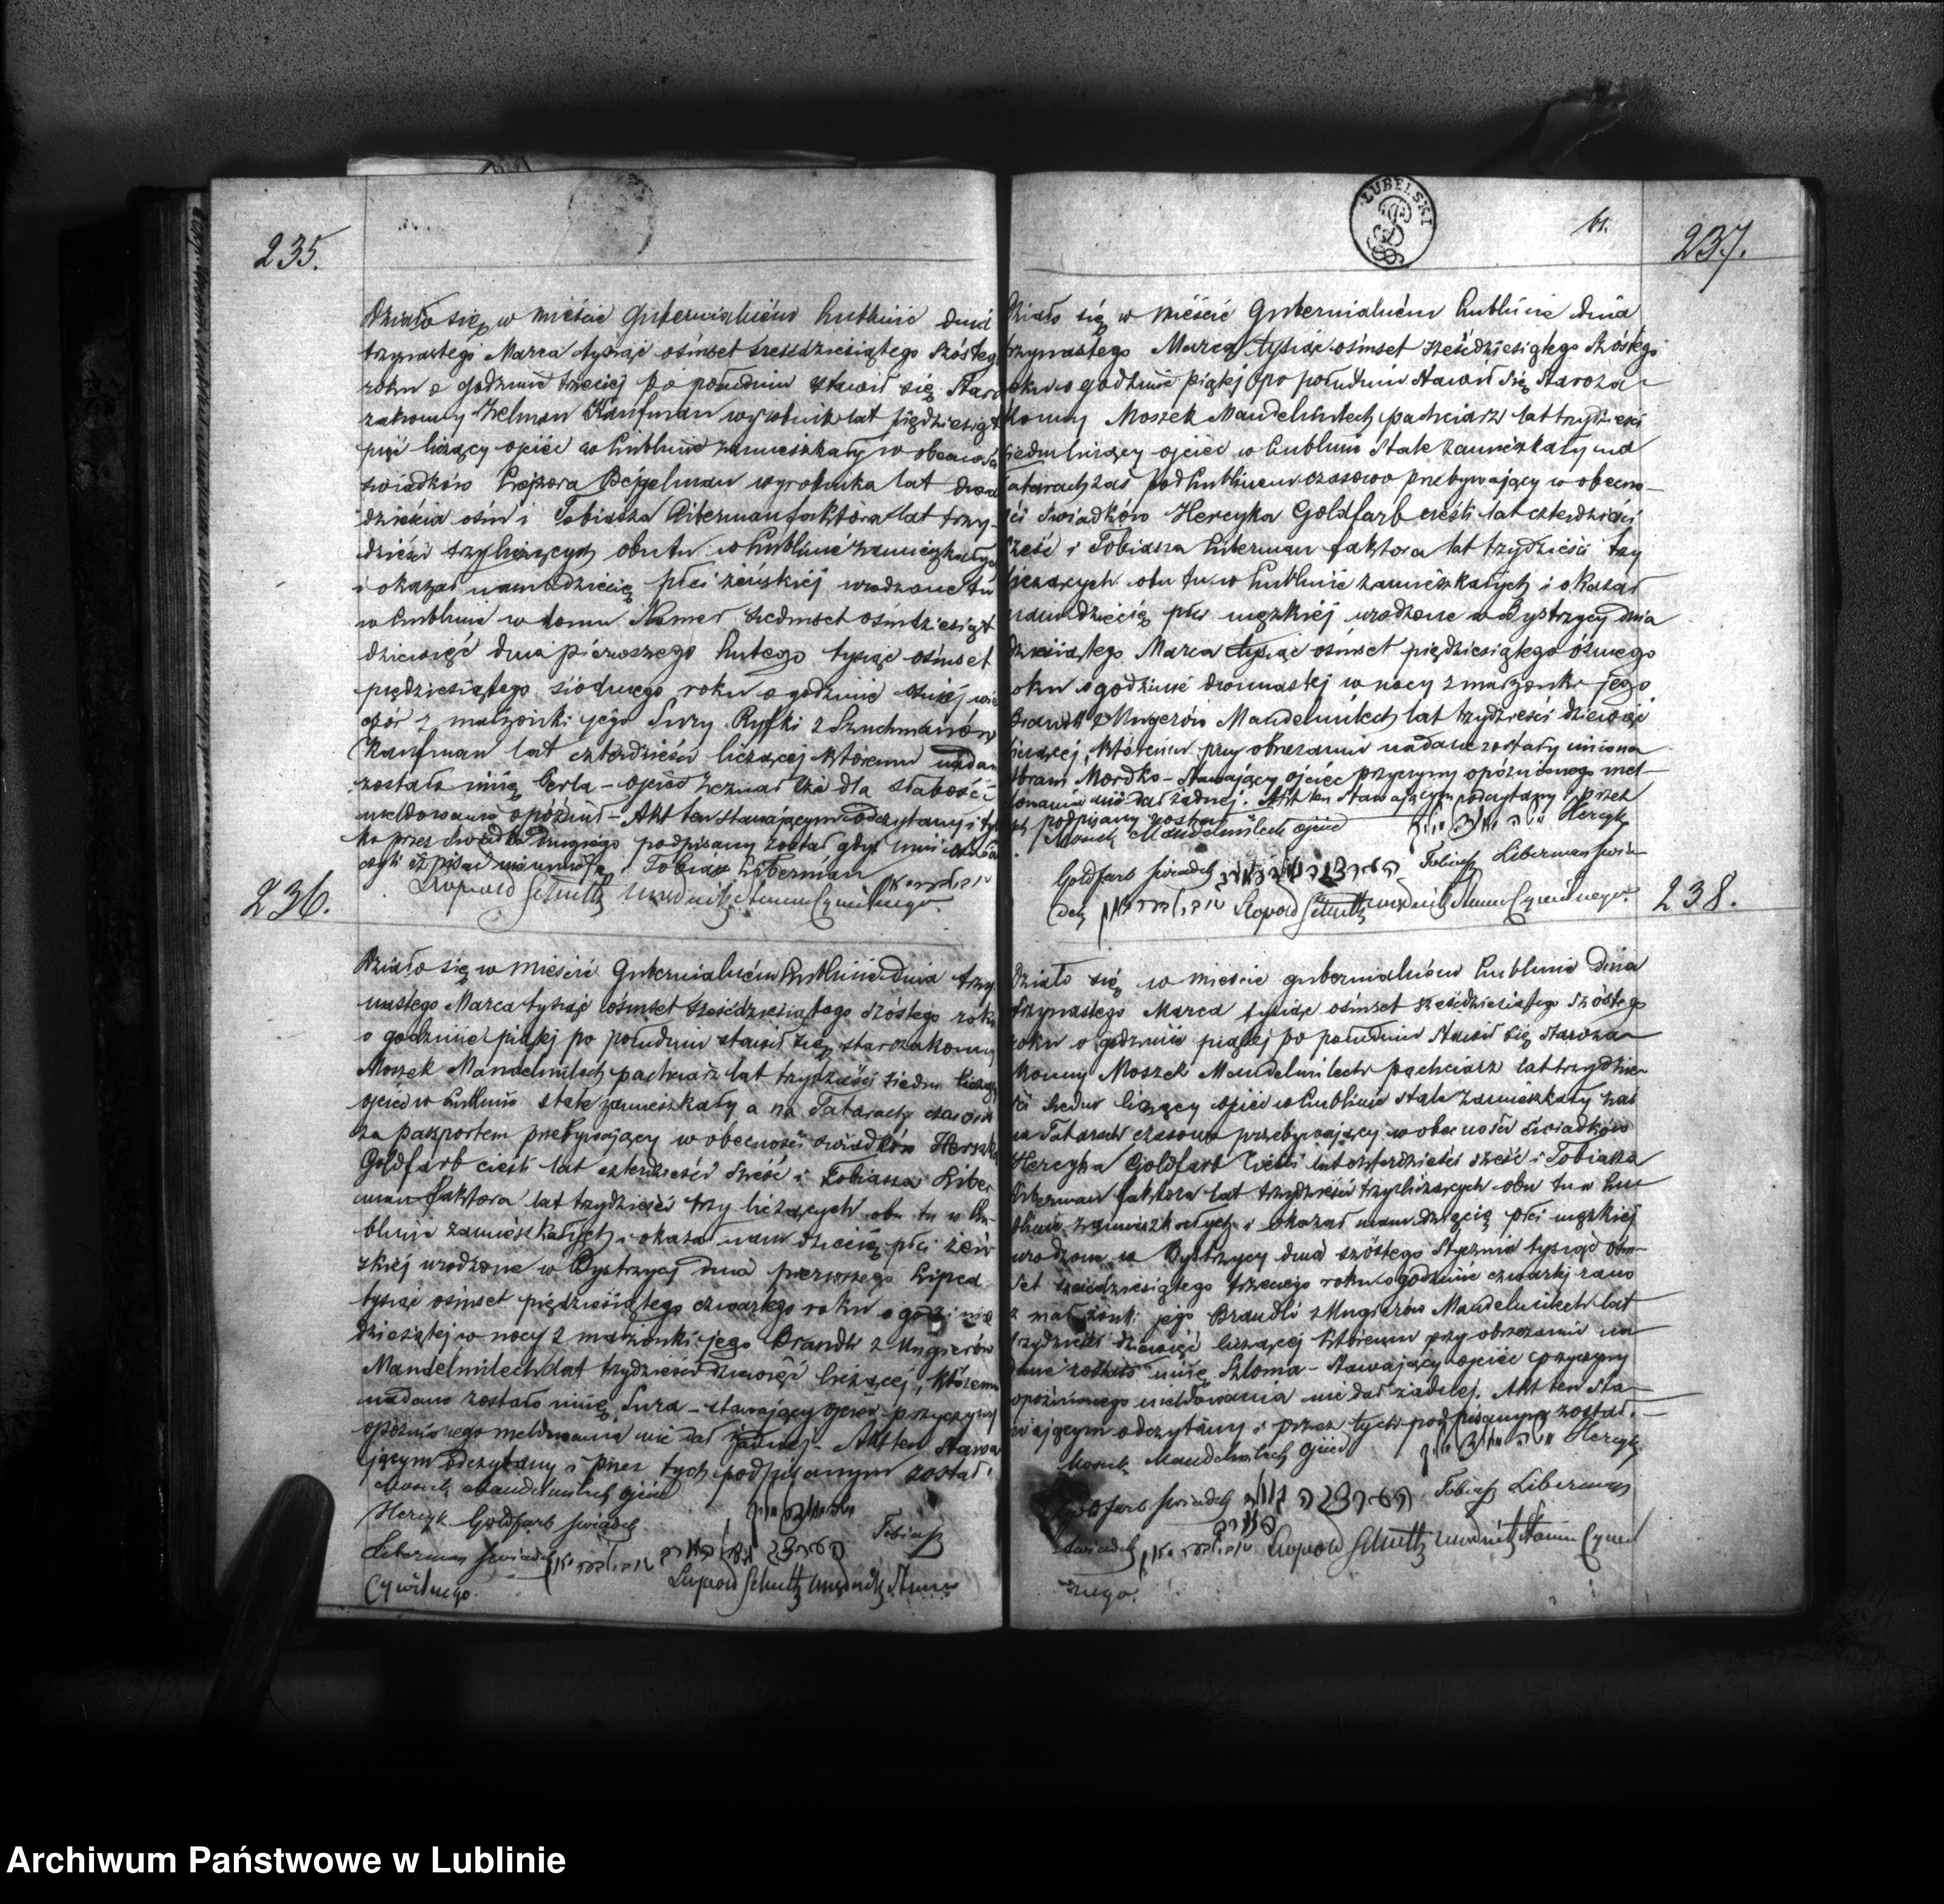 235.
Działo się w mieście Gubernialném Lublinie dnia
trzynastego Marca tysiąc ośmset sześćdziesiątego szóstego
roku o godzinie trzeciej po południu stawił się Staro
zakonny Zelman Kaufman wyrobnik lat pięćdziesiąt
pięć liczący ojciec w Lublinie zamieszkały w obecności
świadków Lejzora Bejgelman wyrobnika lat dwa
dzieścia ośm i Tobiasza Liberman faktora lat trzy-
dzieści trzy liczących obu tu w Lublinie zamieszkałych
i okazał nam dziecię płci żeńskiéj urodzone tu
w Lublinie w domu Numer siedmset ośmdziesiąt
dziewięć dnia pierwszego Lutego tysiąc ośmset
pięćdziesiątego siódmego roku o godzinie ósmej wie
czór z małżonki jego Sury Ryfki z Szuchmanów
Kaufman lat czterdzieści liczącej któremu nadan
zostało imię Perla - ojciec zeznał że dla słabości
meldowanie opóźnił - Akt ten stawającym odczytany i tyl
ko przez świadka drugiego podpisany został gdyż inni
części iż pisać nie umieją. Tobiasz Liberman
Leopold Schultz urzędnik Stanu Cywilnego.
236.
Działo się w mieście Gubernialném Lublinie dnia trzy-
nastego Marca tysiąc ośmset sześćdziesiątego szóstego roku
o godzinie piątej po południu stawił się starozakonny
Moszek Mandelmilech pachciarz lat trzydzieści siedm liczący
ojciec w Lublinie stale zamieszkały a na Tatarach czasowo
za paszportem przebywający w obecności świadków Herszka
Goldfarb cieśli lat czterdzieści sześć i Tobiasza Liber
man faktora lat trzydzieści trzy liczących obu tu w Lu-
blinie zamieszkałych i okazał nam dziecię płci żeń
skiéj urodzone w Bystrzycy dnia pierwszego Lipca
tysiąc ośmset pięćdziesiątego czwartego roku o godzinie
dziesiątej w nocy z małżonki jego Brandli z Ungierów
Mandelmilech lat trzydzieści dziewięć liczącej, któremu
nadano zostało imię Sura - stawający ojciec przyczyny
opóźnionego meldowania nie dał żadnej - Akt ten stawa
jącym odczytany i przez tych podpisanym został.
Moszek Mandelmilech ojciec
Hercyk Goldfarb świadek Tobiasz
Liberman świadek Leopold Schultz urzędnik Stanu
Cywilnego.
ŁUBELSKI
61.
237.
Działo się w mieście Gubernialném Lublinie dnia
trzynastego Marca tysiąc ośmset sześćdziesiątego szóstego
roku o godzinie piątej po południu stawił się staroza-
konny Moszek Mandelmilech pachciarz lat trzydzieści
siedm liczący ojciec w Lublinie stale zamieszkały na
Tatarach zaś pod Lublinem czasowo przebywający w obecno-
ści świadków Hercyka Goldfarb cieśli lat czterdzieści
sześć i Tobiasza Liberman faktora lat trzydzieści trzy
liczących obu tu w Lublinie zamieszkałych i okazał
nam dziecię płci męzkiéj urodzone w Bystrzycy dnia
dziesiątego Marca tysiąc ośmset pięćdziesiątego ósmego
roku o godzinie dwunastej w nocy z małżonki jego
Brandli z Ungerów Mandelmilech lat trzydzieści dziewięć
liczącej, któremu przy obrzezaniu nadane zostały imiona
Abram Mordko - Stawający ojciec przyczyny opóźnionego mel-
dowania nie dał żadnej. Akt ten stawającym odczytany i przez
tych podpisany został
Moszek Mandelmilech ojciec Hercyk
Goldfarb świadek Tobiasz Liberman świa
dek Leopold Schultz urzędnik Stanu Cywilnego.
238.
Działo się w mieście gubernialném Lublinie dnia
trzynastego Marca tysiąc ośmset sześćdziesiątego szóstego
roku o godzinie piątej po południu stawił się staroza-
konny Moszek Mandelmilech pachciarz lat trzydzie-
ści siedm liczący ojciec w Lublinie stale zamieszkały zaś
na Tatarach czasowo przebywający w obecności świadków
Hercyka Goldfarb cieśli lat czterdzieści sześć i Tobiasza
Liberman faktora lat trzydzieści trzy liczących obu tu w Lu-
blinie zamieszkałych i okazał nam dziecię płci męzkiéj
urodzone w Bystrzycy dnia szóstego Stycznia tysiąc ośm-
set sześćdziesiątego trzeciego roku o godzinie czwartej rano
z małżonki jego Brandli z Ungierów Mandelmilech lat
trzydzieści dziewięć liczącej któremu przy obrzezaniu na
dane zostało imię Szloma - Stawający ojciec przyczyny
opóźnionego meldowania nie dał żadnej. Akt ten sta-
wającym odczytany i przez tych podpisanym został.
Moszek Mandelmilech ojciec Hercyk
Goldfarb świadek Tobiasz Liberman
świadek Leopold Schultz urzędnik Stanu Cywil
nego.
Archiwum Państwowe w Lublinie